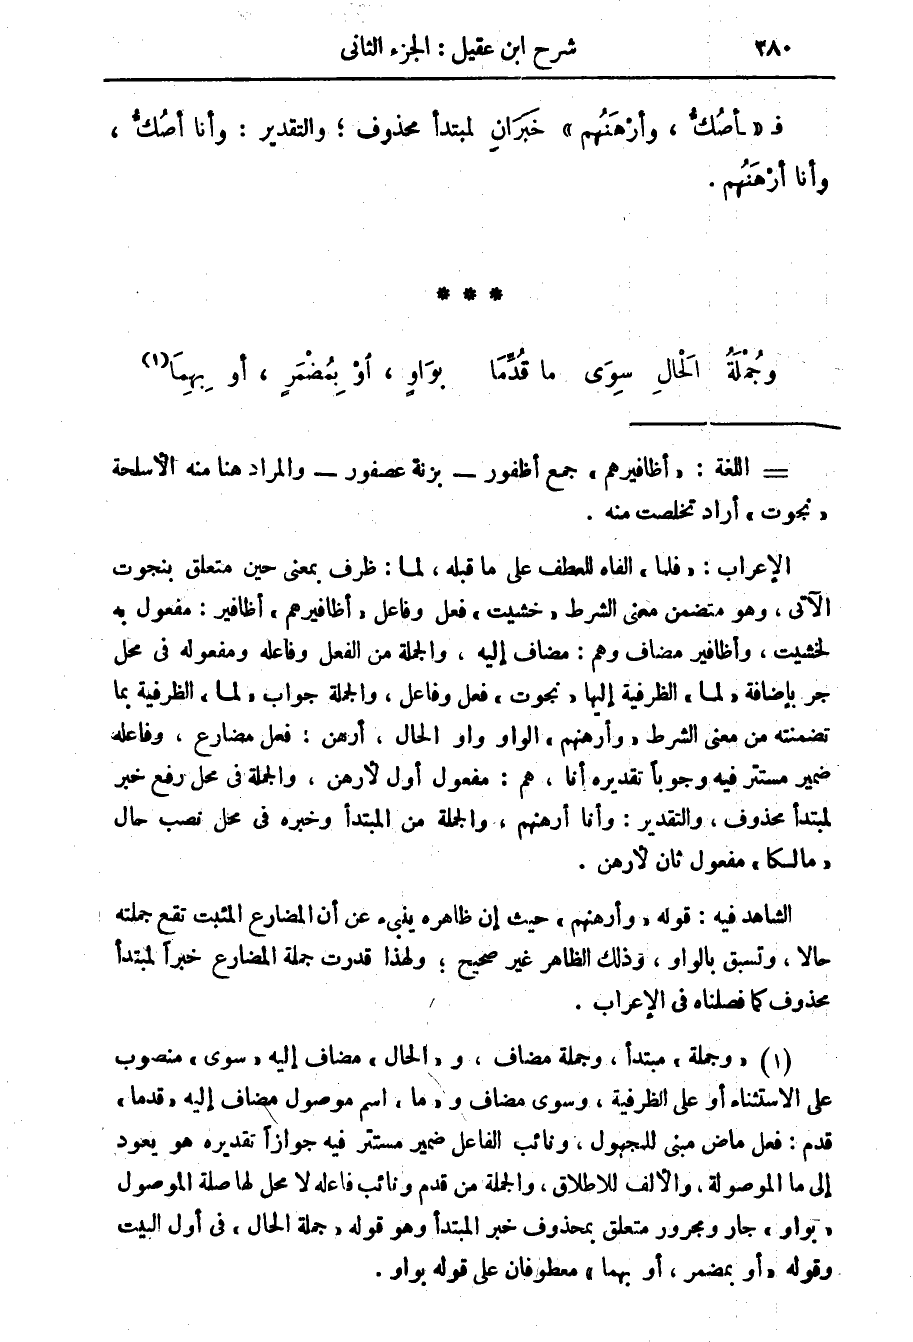 ٢٨٠ شرح ابن عقيل : الجزء الثانى
فـ « ـأصُكُّ ، وأرْهَنُهم » خَبَرَانِ لمبتدأ محذوف ؛ والتقدير : وأنا أصُكُّ ،
وأنا أرْهَنُهم .
* * *
وجُمْلَةُ الْحَالِ سِوَى ما قُدِّمَا بوَاوٍ ، أوْ بِمُضْمَرٍ ، أو بِهِمَا (١)
= اللغة : « أظافيرهم » جمع أظفور — بزنة عصفور — والمراد هنا منه الأسلحة
« نجوت » أراد تخلصت منه .
الإعراب : « فلما » الفاء للعطف على ما قبله ، لمـا : ظرف بمعنى حين متعلق بنجوت
الآتى ، وهو متضمن معنى الشرط « خشيت » فعل وفاعل « أظافيرهم » أظافير : مفعول به
لخشيت ، وأظافير مضاف وهم : مضاف إليه ، والجملة من الفعل وفاعله ومفعوله فى محل
جر بإضافة « لمـا » الظرفية إليها « نجوت » فعل وفاعل ، والجملة جواب « لمـا » الظرفية بما
تضمنته من معنى الشرط « وأرهنهم » الواو واو الحال ، أرهن : فعل مضارع ، وفاعله
ضمير مستتر فيه وجوباً تقديره أنا ، هم : مفعول أول لأرهن ، والجملة فى محل رفع خبر
لمبتدأ محذوف ، والتقدير : وأنا أرهنهم ، والجملة من المبتدأ وخبره فى محل نصب حال
« مالـكا » مفعول ثان لأرهن .
الشاهد فيه : قوله « وأرهنهم » حيث إن ظاهره ينبىء عن أن المضارع المثبت تقع جملته
حالا ، وتسبق بالواو ، وذلك الظاهر غير صحيح ؛ ولهذا قدرت جملة المضارع خبراً لمبتدأ
محذوف كما فصلناه فى الإعراب .
(١) « وجملة » مبتدأ ، وجملة مضاف ، و « الحال » مضاف إليه « سوى » منصوب
على الاستثناء أو على الظرفية ، وسوى مضاف و « ما » اسم موصول مضاف إليه « قدما »
قدم : فعل ماض مبنى للمجهول ، ونائب الفاعل ضمير مستتر فيه جوازاً تقديره هو يعود
إلى ما الموصولة ، والألف للاطلاق ، والجملة من قدم ونائب فاعله لا محل لها صلة الموصول
« بواو » جار ومجرور متعلق بمحذوف خبر المبتدأ وهو قوله « جملة الحال » فى أول البيت
وقوله « أو بمضمر ، أو بهما » معطوفان على قوله بواو .